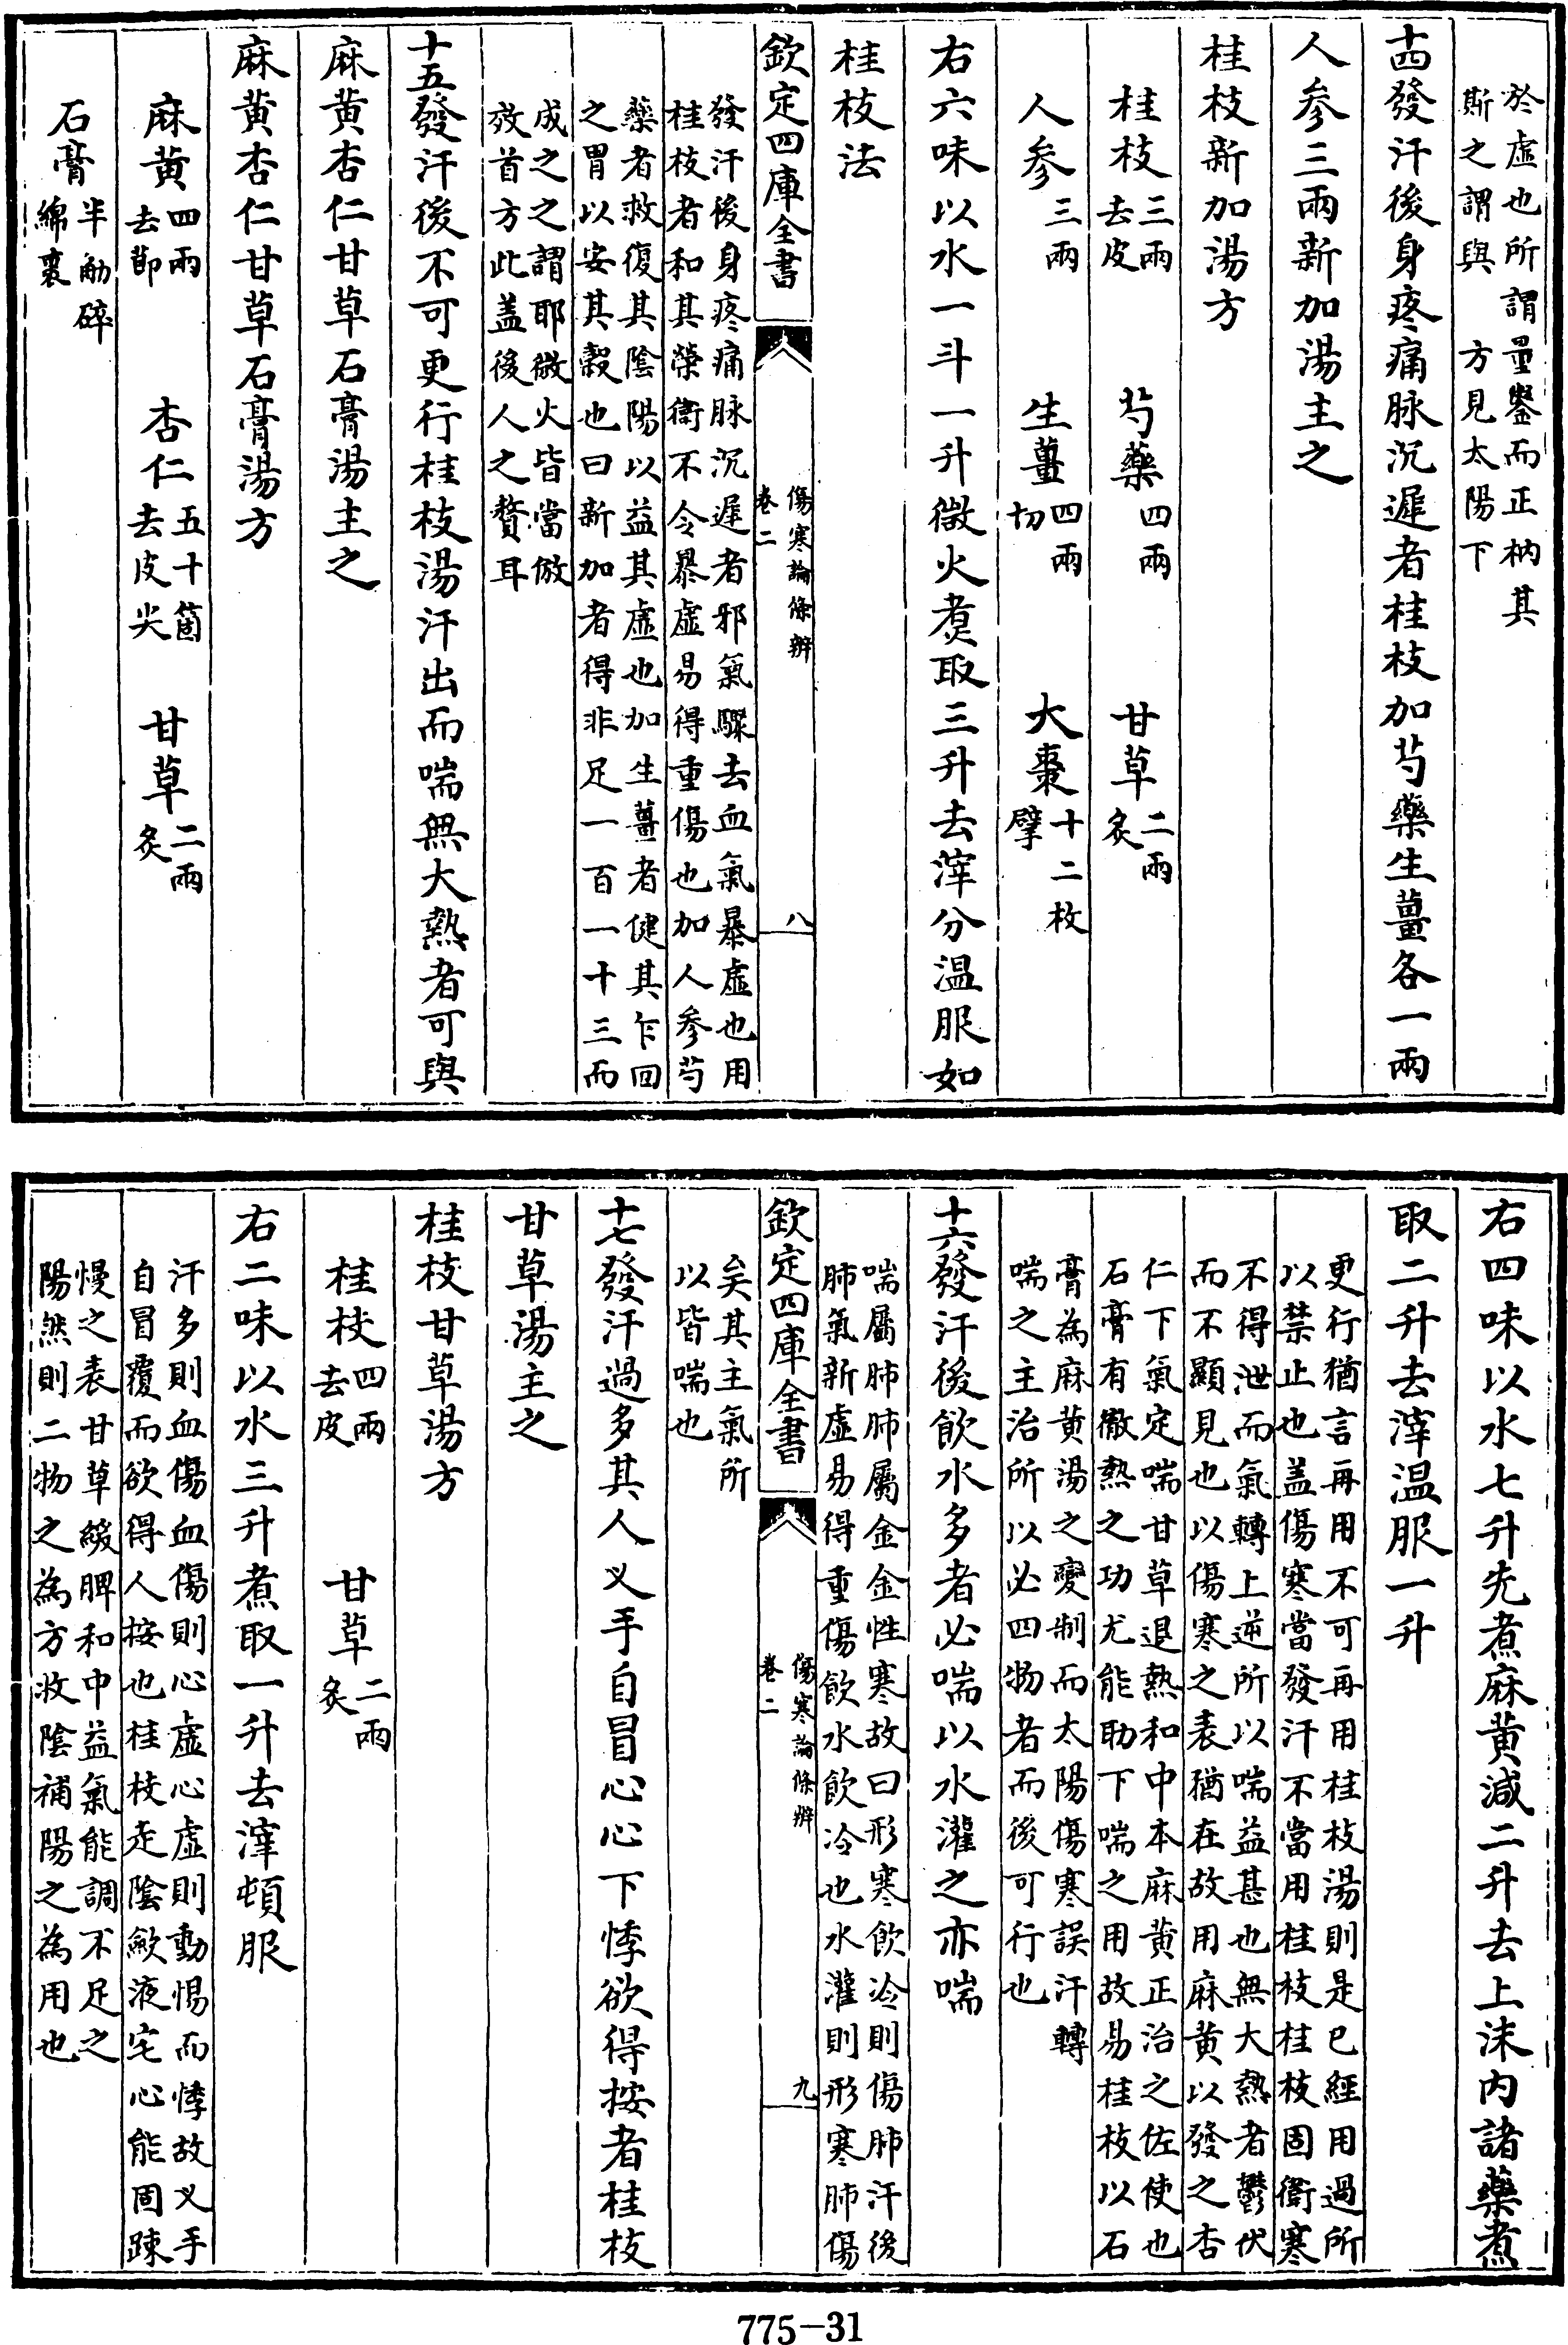 於虛也所謂量鑿而正枘其
斯之謂與　方見太陽下
十四發汗後身疼痛脉沉遲者桂枝加芍藥生薑各一兩
人參三兩新加湯主之
桂枝新加湯方
桂枝三兩去皮　芍藥四兩　甘草二兩炙
人參三兩　生薑四兩切　大棗十二枚擘
右六味以水一斗一升微火煑取三升去滓分温服如
桂枝法
欽定四庫全書　傷寒論條辨 卷二　八
發汗後身疼痛脉沉遲者邪氣驟去血氣暴虛也用
桂枝者和其榮衞不令暴虛易得重傷也加人參芍
藥者救復其陰陽以益其虛也加生薑者健其乍回
之胃以安其穀也曰新加者得非足一百一十三而
成之之謂耶微火皆當倣
效首方此盖後人之贅耳
十五發汗後不可更行桂枝湯汗出而喘無大熱者可與
麻黄杏仁甘草石膏湯主之
麻黄杏仁甘草石膏湯方
麻黄四兩去節　杏仁五十箇去皮尖　甘草二兩炙
石膏半觔碎綿裹
右四味以水七升先煮麻黄減二升去上沫内諸藥煮
取二升去滓温服一升
更行猶言再用不可再用桂枝湯則是已經用過所
以禁止也盖傷寒當發汗不當用桂枝桂枝固衞寒
不得泄而氣轉上逆所以喘益甚也無大熱者鬱伏
而不顯見也以傷寒之表猶在故用麻黄以發之杏
仁下氣定喘甘草退熱和中本麻黄正治之佐使也
石膏有徹熱之功尤能助下喘之用故易桂枝以石
膏為麻黄湯之變制而太陽傷寒誤汗轉
喘之主治所以必四物者而後可行也
十六發汗後飲水多者必喘以水灌之亦喘
喘屬肺肺屬金金性寒故曰形寒飲冷則傷肺汗後
肺氣新虛易得重傷飲水飲冷也水灌則形寒肺傷
欽定四庫全書　傷寒論條辨 卷二　九
矣其主氣所
以皆喘也
十七發汗過多其人叉手自冒心心下悸欲得按者桂枝
甘草湯主之
桂枝甘草湯方
桂枝四兩去皮　甘草二兩炙
右二味以水三升煮取一升去滓頓服
汗多則血傷血傷則心虛心虛則動惕而悸故叉手
自冒覆而欲得人按也桂枝走陰歛液宅心能固踈
慢之表甘草緩脾和中益氣能調不足之
陽然則二物之為方收陰補陽之為用也
775-31